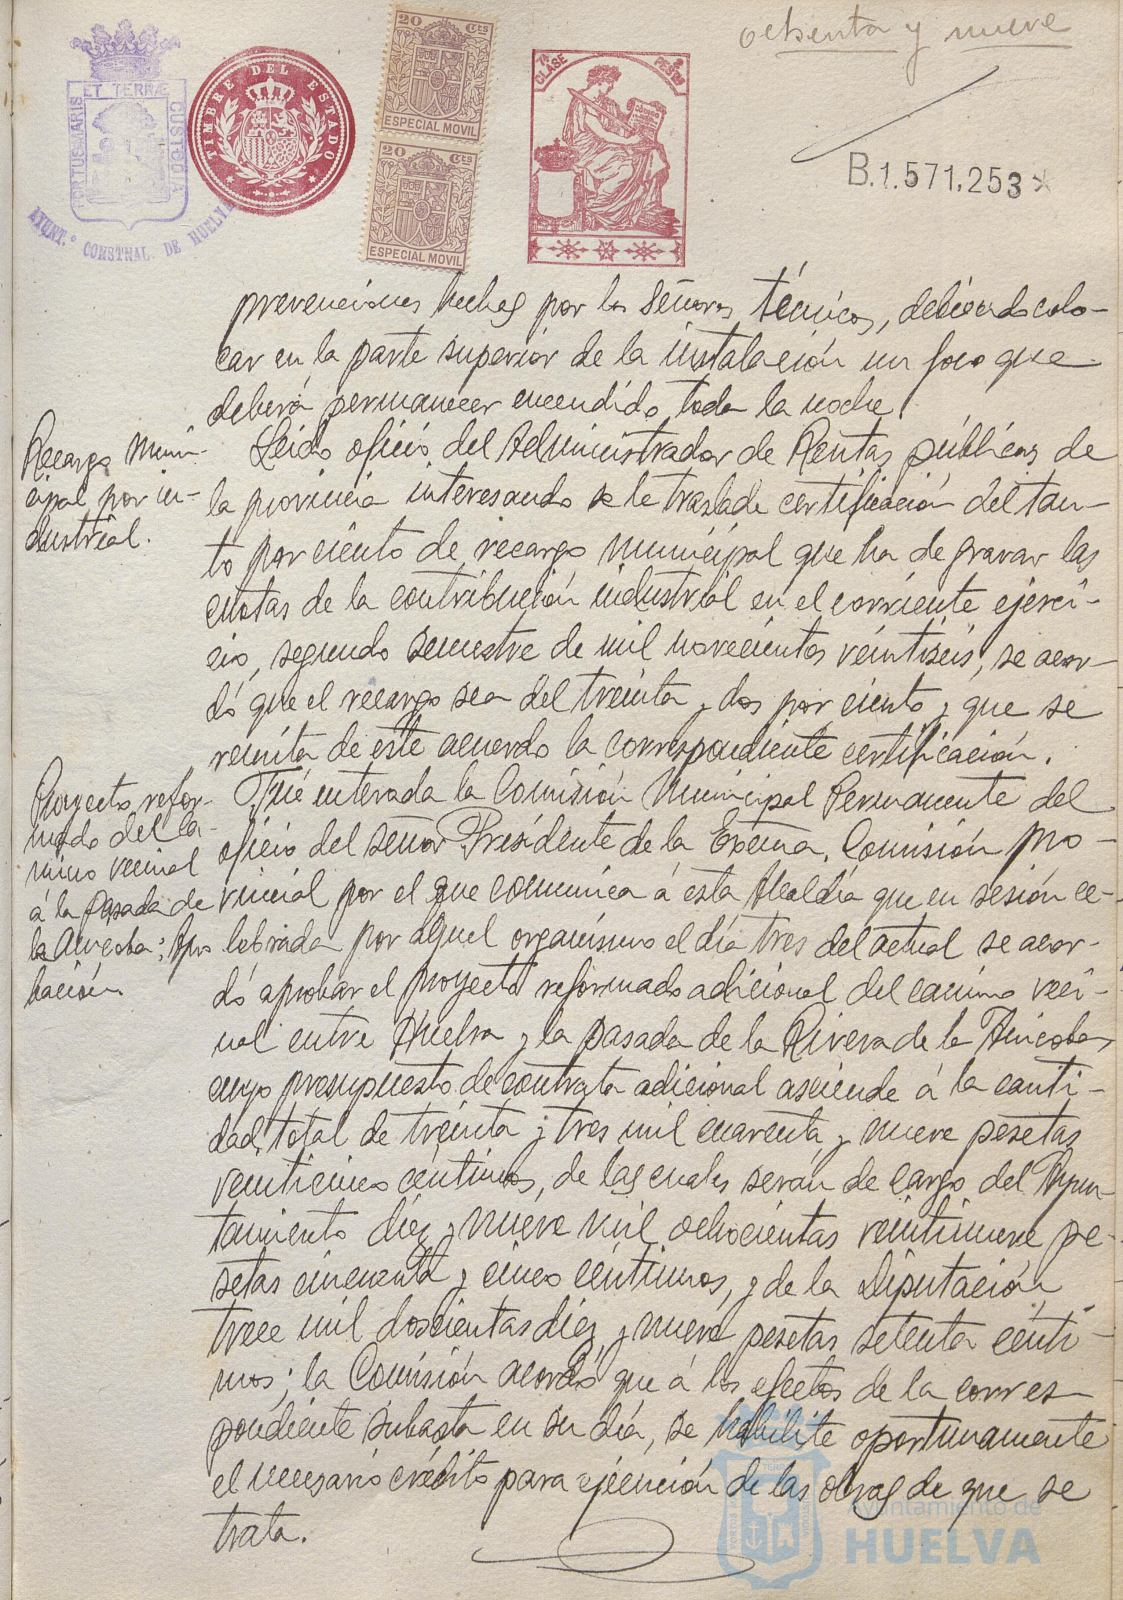 ochenta y nueve
PORTUS MARIS ET TERRÆ CUSTODIA
AYUNT.º CONSTNAL. DE HUELVA
TIMBRE DEL ESTADO
20 Cts
ESPECIAL MOVIL
20 Cts
ESPECIAL MOVIL
7ª CLASE
PESTAS
B.1.571.253
prevenciones hechas por los Señores técnicos, debiendo colo-
car en la parte superior de la instalación un foco que
deberá permanecer encendido toda la noche.
Recargo Muni-
cipal por in-
dustrial.
Leido oficio del Administrador de Rentas públicas de
la provincia interesando se le traslade certificación del tan-
to por ciento de recargo municipal que ha de gravar las
cuotas de la contribución industrial en el corriente ejerci-
cio, segundo semestre de mil novecientos veintiseis, se acor-
dó que el recargo sea del treinta y dos por ciento y que se
remita de este acuerdo la correspondiente certificación.
Proyecto refor-
mado del ca-
mino vecinal
á la Pasada de
la Anicoba: Apro
bación.
Fué enterada la Comisión Municipal Permanente del
oficio del señor Presidente de la Excma. Comisión pro-
vincial por el que comunica á esta Alcaldía que en sesión ce-
lebrada por aquel organismo el día tres del actual se acor-
dó aprobar el proyecto reformado adicional del camino veci-
nal entre Huelva y la pasada de la Rivera de la Anicoba,
cuyo presupuesto de contrata adicional asciende á la canti-
dad total de treinta y tres mil cuarenta y nueve pesetas
veinticinco céntimos, de las cuales serán de cargo del Ayun-
tamiento diez y nueve mil ochocientas veintinueve pe-
setas cincuenta y cinco céntimos, y de la Diputación
trece mil doscientas diez y nueve pesetas setenta cénti-
mos; la Comisión acordó que á los efectos de la corres-
pondiente subasta en su día, se habilite oportunamente
el necesario crédito para ejecución de las obras de que se
trata.
Ayuntamiento de
HUELVA